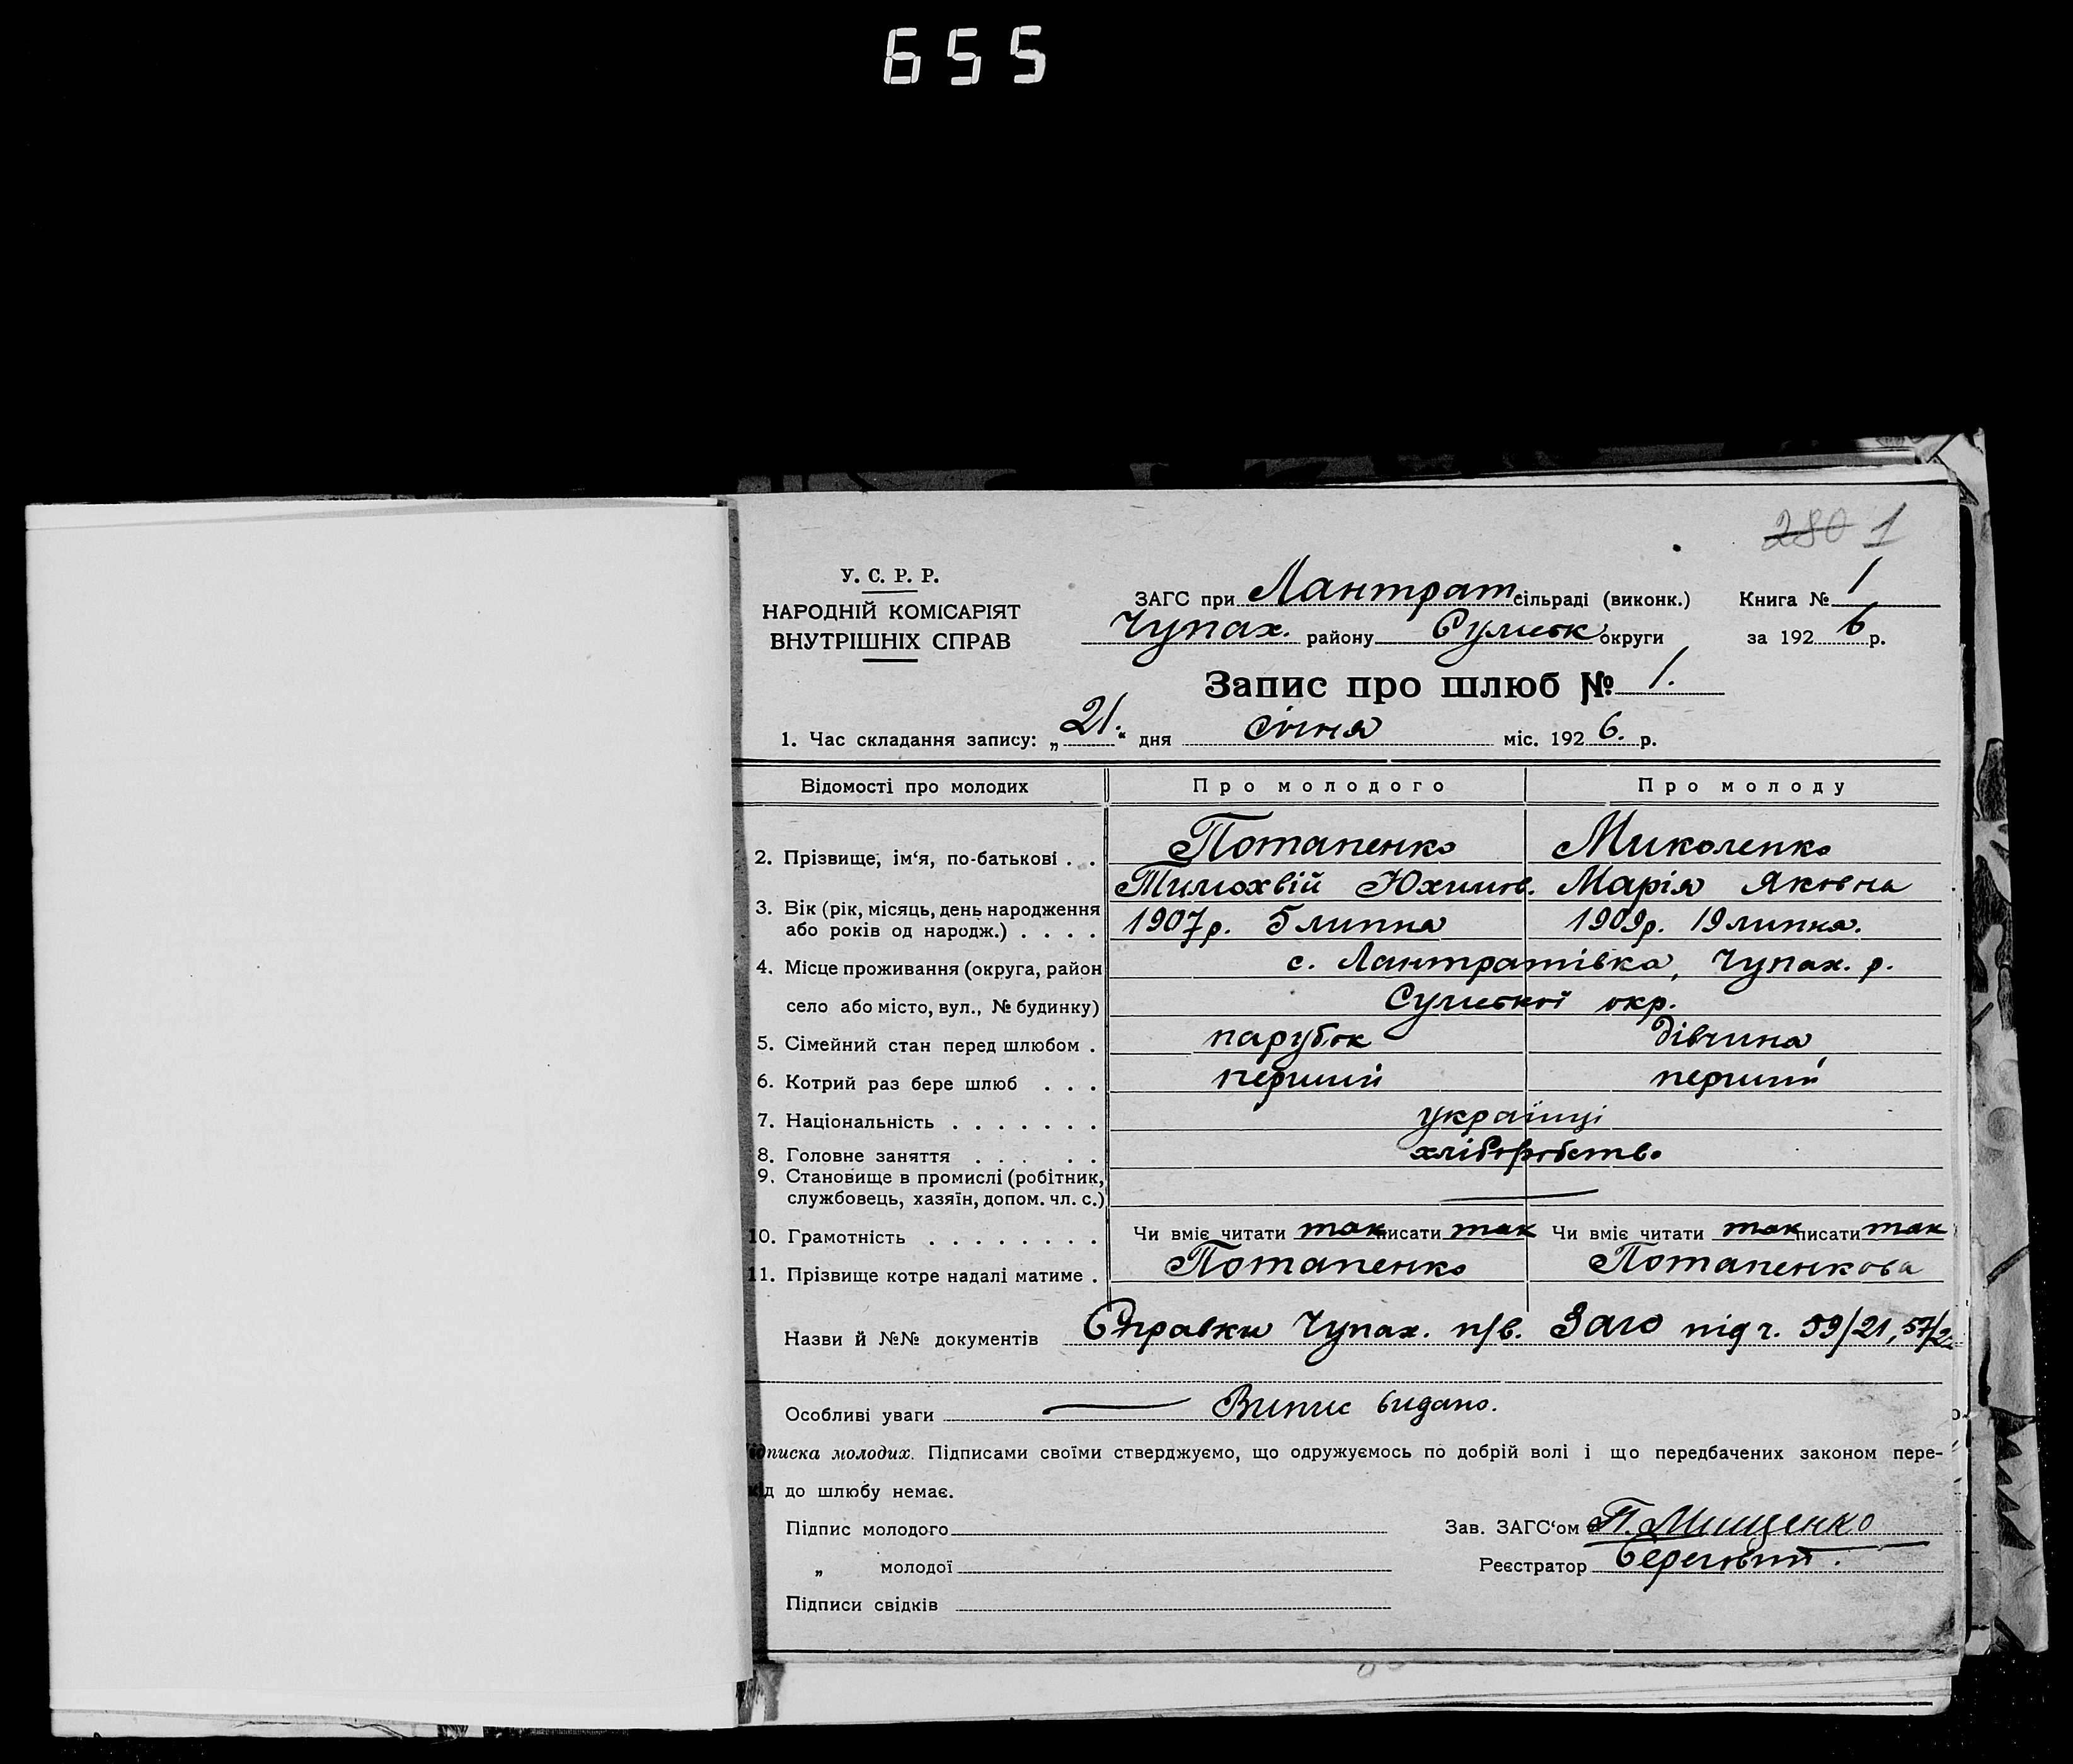 655
280 1
У. С. Р. Р.
НАРОДНІЙ КОМІСАРІЯТ
ВНУТРІШНІХ СПРАВ
ЗАГС при Лантрат сільраді (виконк.) Книга № 1
Чупах. району Сумськ округи за 192 6 р.
Запис про шлюб № 1.
1. Час складання запису: „21.“ дня січня міс. 192 6. р.
Відомості про молодих Про молодого Про молоду
2. Прізвище, ім‘я, по-батькові . . Потапенко Миколенко
Тимохвій Юхимов. Марія Яковна
3. Вік (рік, місяць, день народження
або років од народж.) . . . . 1907р. 5 липня 1909р. 19 липня.
4. Місце проживання (округа, район с. Лантратівка, Чупах. р.
село або місто, вул., № будинку) Сумської окр.
5. Сімейний стан перед шлюбом . парубок дівчина
6. Котрий раз бере шлюб . . . перший перший
7. Національність . . . . . . . українці
8. Головне заняття . . . . . хліборобство
9. Становище в промислі (робітник,
службовець, хазяїн, допом. чл. с.)
10. Грамотність . . . . . . . . Чи вміє читати так писати так Чи вміє читати так писати так
11. Прізвище котре надалі матиме . Потапенко Потапенкова
Назви й №№ документів Справки Чупах. п/в. Загс під ч. 59/21, 57/2
Особливі уваги Випис видано.
Підписка молодих. Підписами своїми стверджуємо, що одружуємось по добрій волі і що передбачених законом пере-
кід до шлюбу немає.
Підпис молодого Зав. ЗАГС‘ом П. Мищенко
„ молодої Реєстратор
Підписи свідків